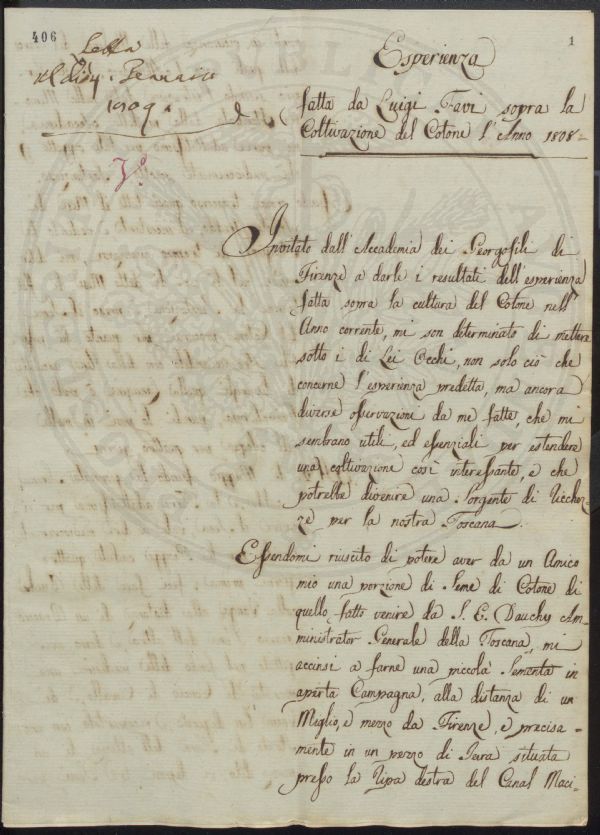 406
1
Letta
il di 4. Gennaio
1809.
Esperienza
fatta da Luigi Favi sopra la
Coltivazione del Cotone l'Anno 1808
Invitato dall'Accademia dei Georgofili di
Firenze a darle i resultati dell'esperienza
fatta sopra la cultura del Cotone nell'
Anno corrente, mi son determinato di mettere
sotto i di Lei Occhi, non solo ciò che
concerne l'esperienza predetta, ma ancora
diverse osservazioni da me fatte, che mi
sembrano utili, ed essenziali per estendere
una coltivazione così interessante, e che
potrebbe divenire una Sorgente di Ricchez-
ze per la nostra Toscana.
Essendomi riuscito di potere aver da un Amico
mio una porzione di Seme di Cotone di
quello fatto venire da S. E. Dauchy Am-
ministrator Generale della Toscana, mi
accinsi a farne una piccola Sementa in
aperta Campagna, alla distanza di un
Miglio, e mezzo da Firenze, e precisa-
mente in un pezzo di Terra situata
presso la Ripa destra del Canal Maci-